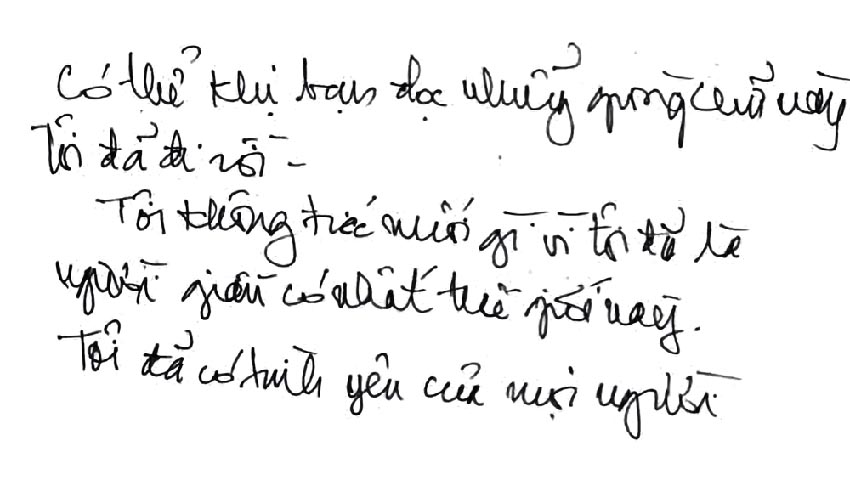 Có thể khi bạn đọc những giòng chữ này
Tôi đã đi rồi -
Tôi không tiếc nuối gì vì tôi đã là
người giàu có nhất thế giới này.
Tôi đã có tình yêu của mọi người